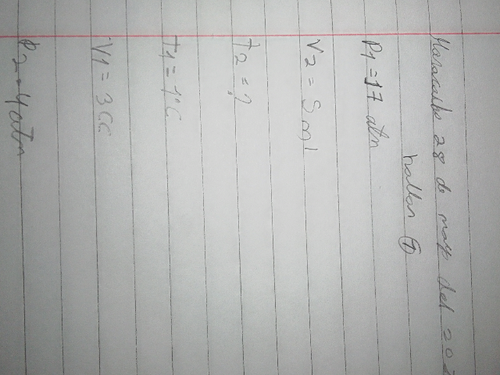 Maracaibo 28 de mayo del 202
hallar (T)
P1 = 17 atm
V2 = 8 ml
t2 = ?
T1 = 1°C
V1 = 3cc
P2 = 4 atm